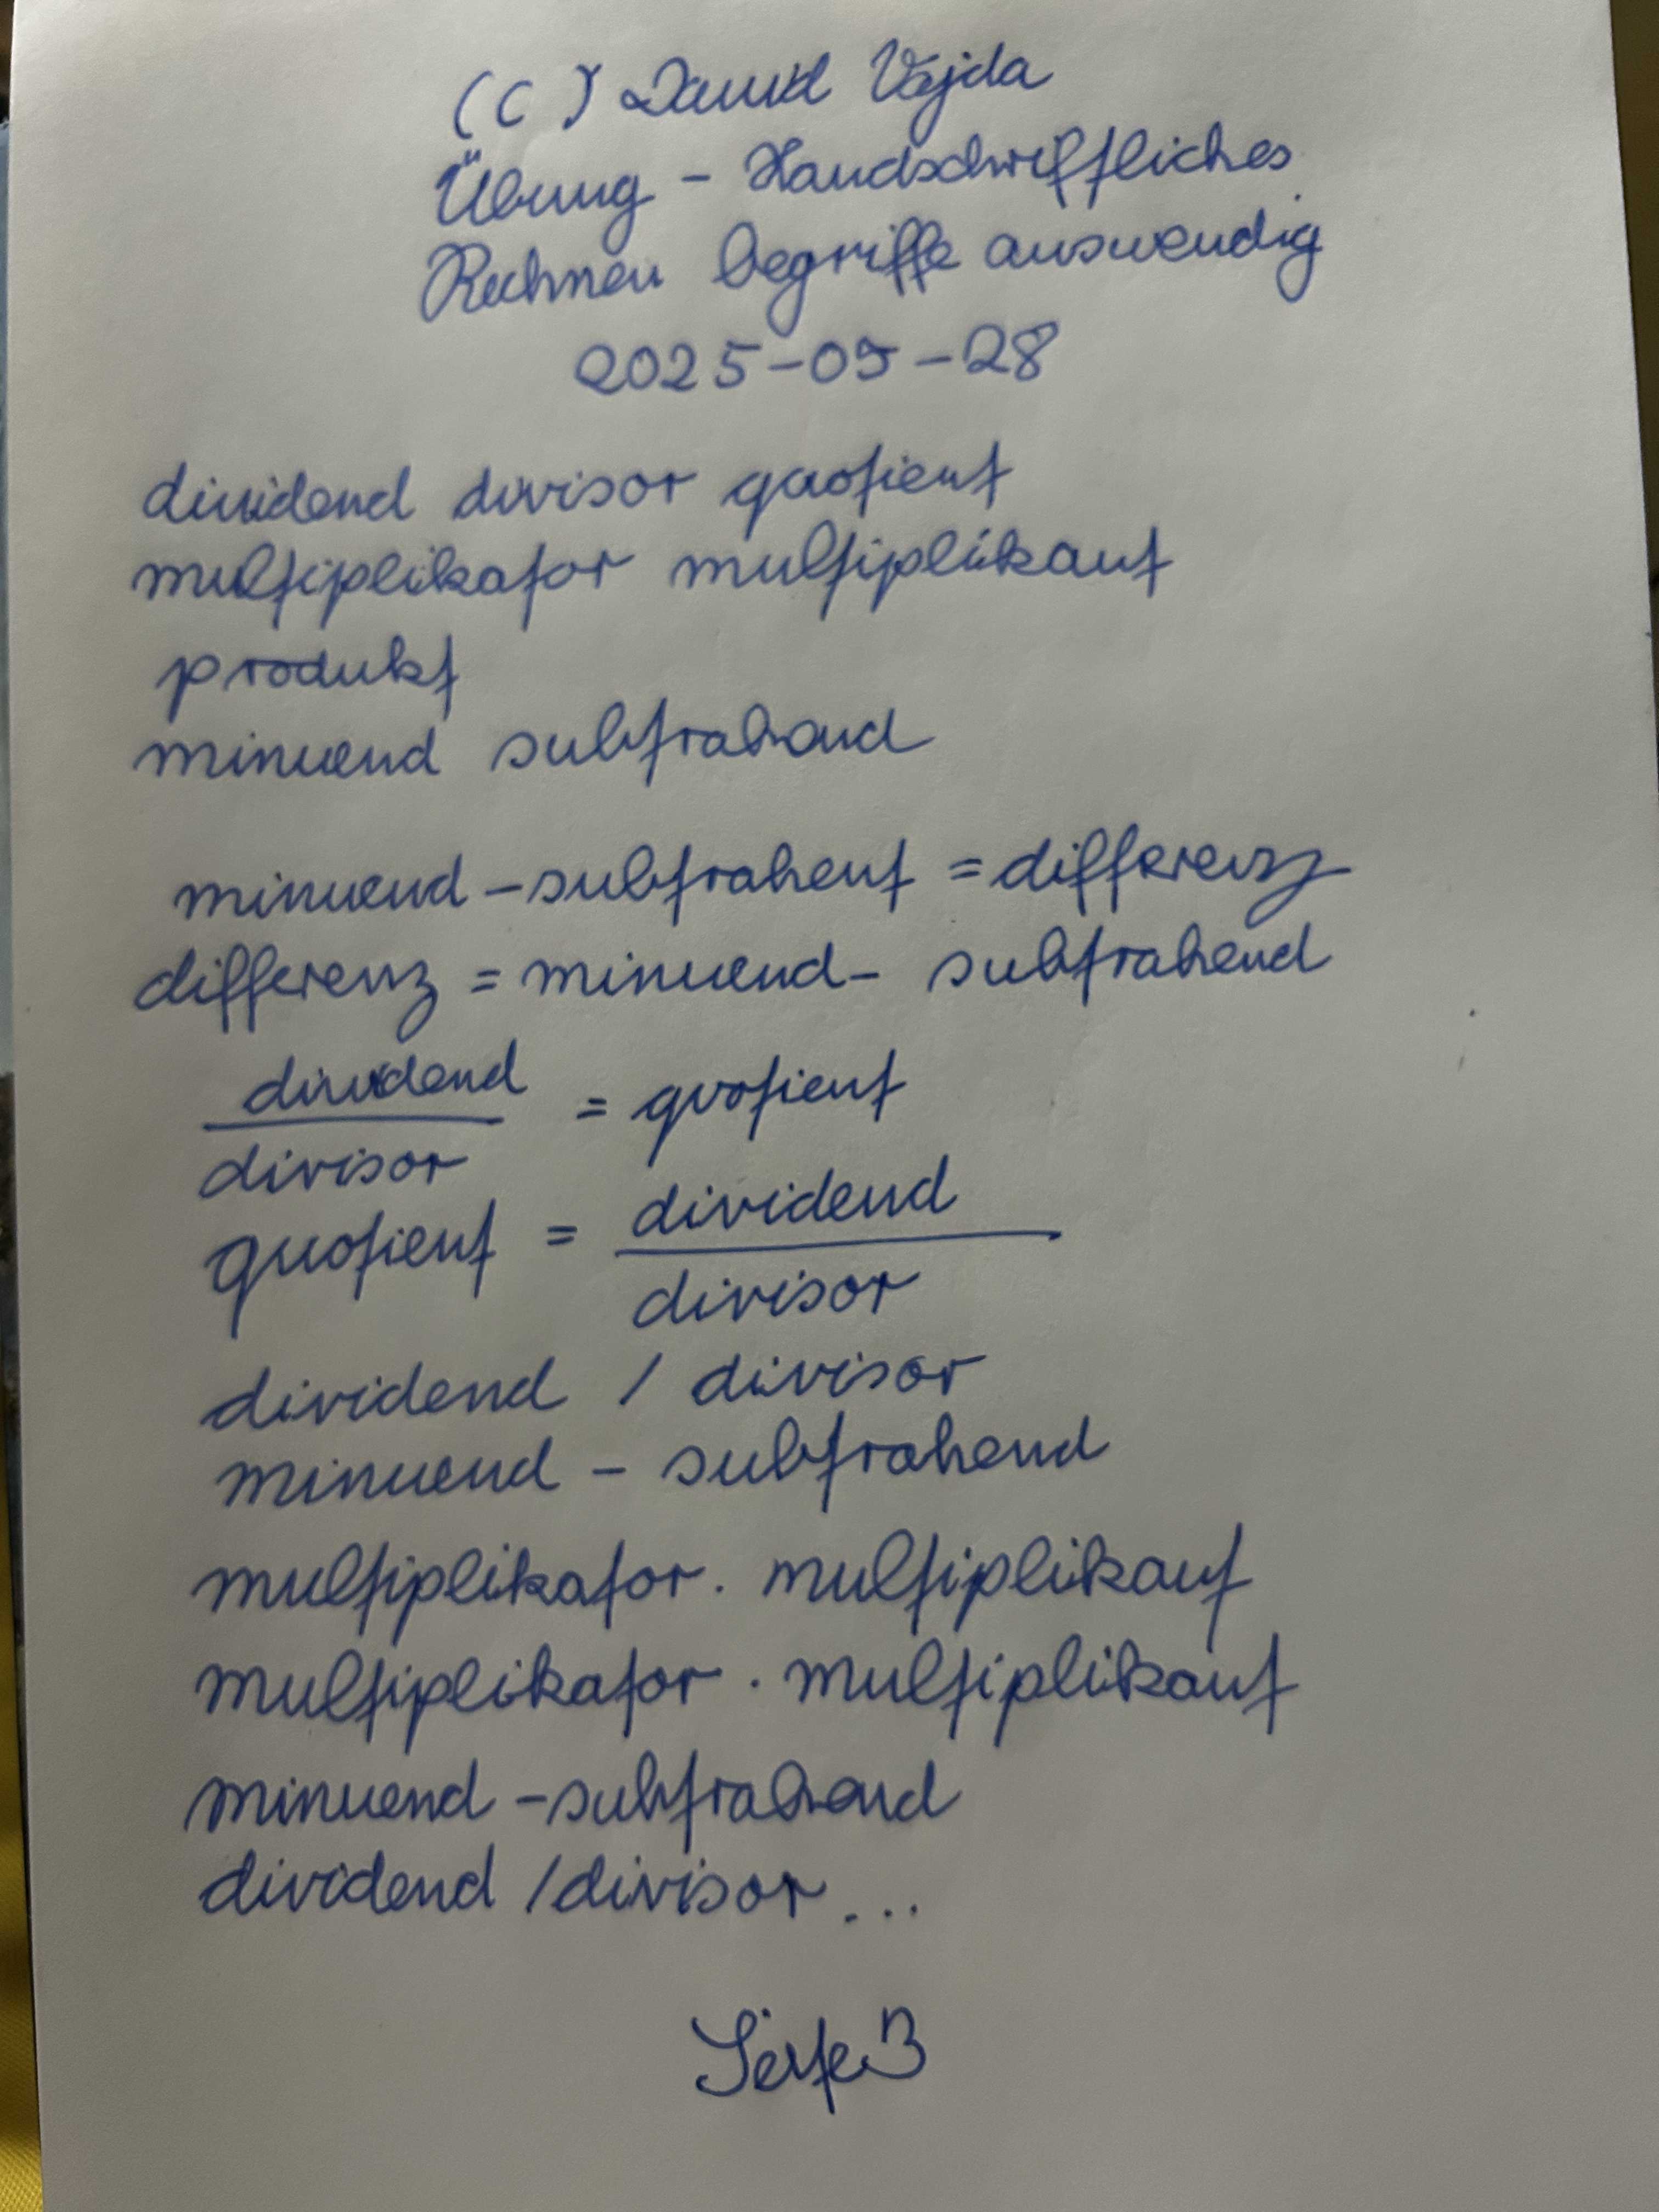 (C) David Vajda
Übung - Handschriftliches
Rechnen begriffe auswendig
2025-09-28
dividend divisor quotient
multiplikator multiplikant
produkt
minuend subtrahend
minuend - subtrahent = differenz
differenz = minuend - subtrahend
dividend
= quotient
divisor
dividend
quotient =
divisor
dividend / divisor
minuend - subtrahend
multiplikator . multiplikant
multiplikator · multiplikant
minuend - subtrahend
dividend / divisor ...
Seite 3